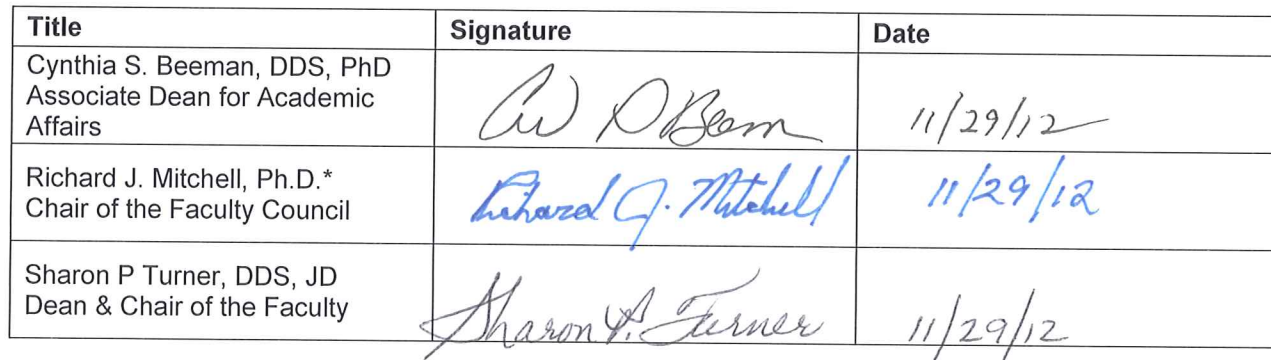 Title Signature Date
Cynthia S. Beeman, DDS, PhD
Associate Dean for Academic
Affairs
11/29/12
Richard J. Mitchell, Ph.D.*
Chair of the Faculty Council
Richard J. Mitchell 11/29/12
Sharon P Turner, DDS, JD
Dean & Chair of the Faculty
Sharon P. Turner 11/29/12